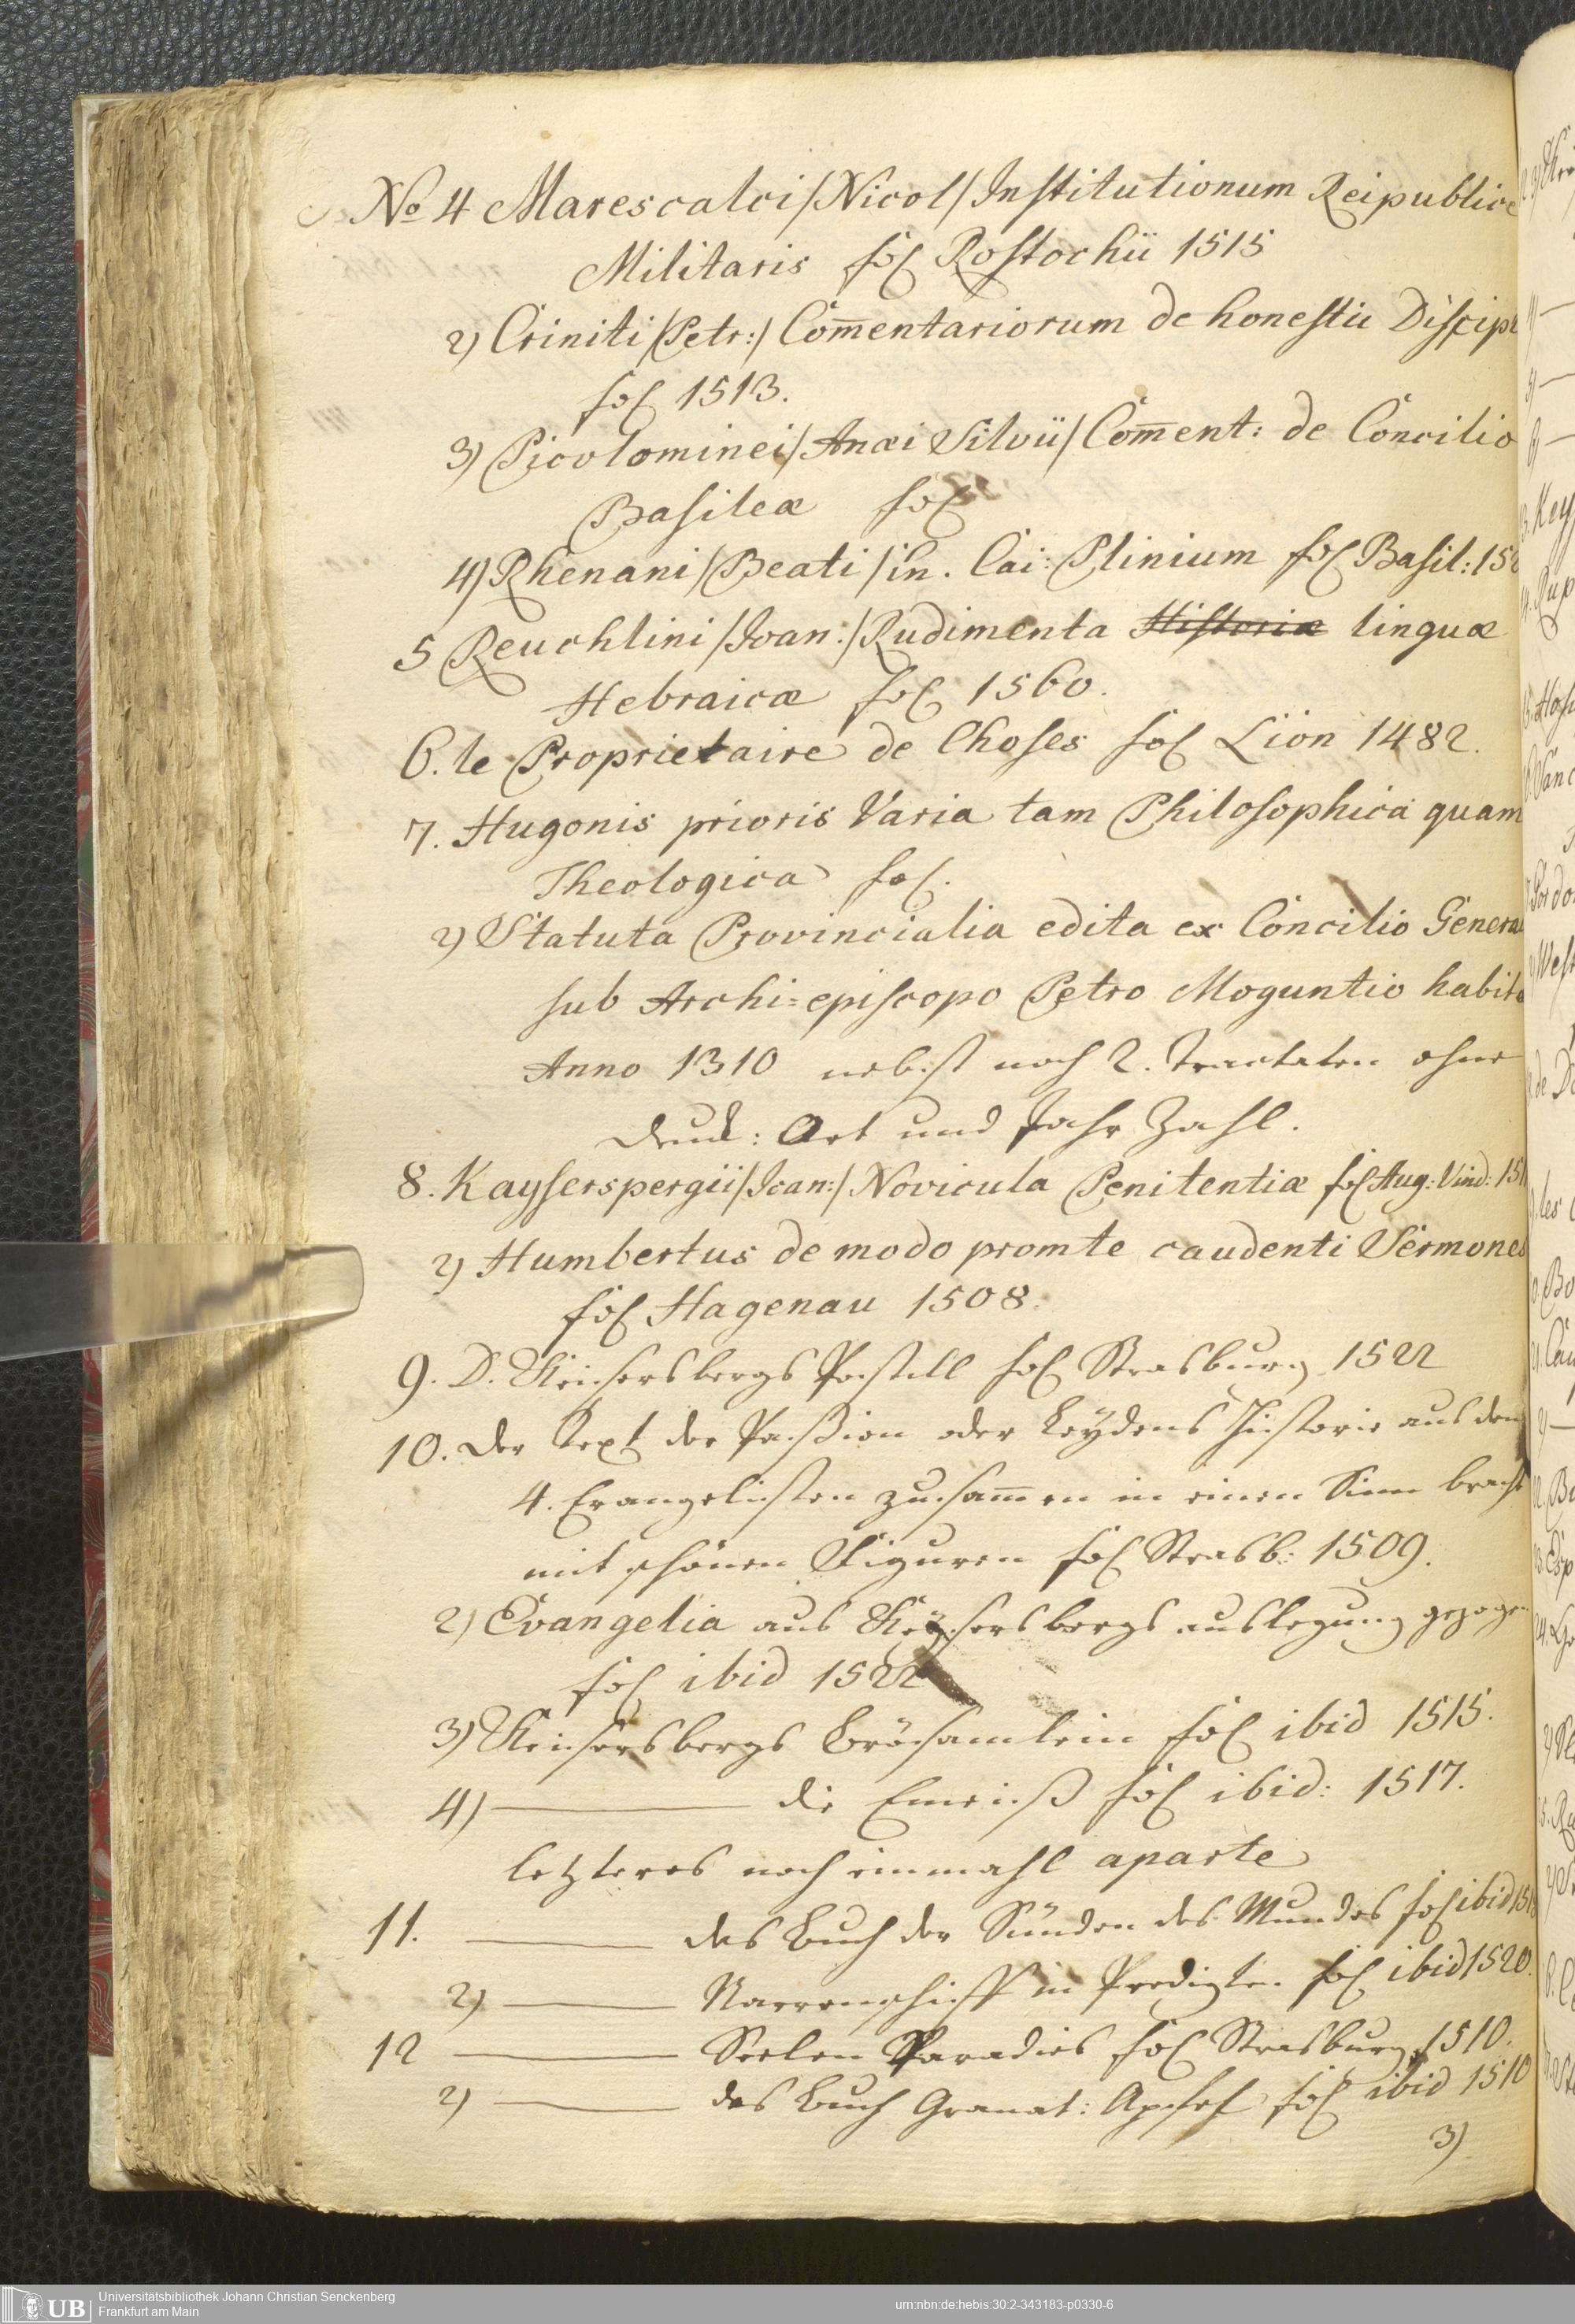 No 4 Marescalci /Nicol/ Institutionum Reipublice
Militaris fol Rostochii 1515
2) Criniti /Petr:/ Com̅entariorum de honestis Discipl
fol 1513.
3) Picolominei /Anæi Silvii/ Com̅ent: de Concilio
Basileæ fol
4) Rhenani /Beati/ in. Cai: Plinium fol Basil: 152
5 Reuchlini /Joan:/ Rudimenta Historiæ linguæ
Hebraicæ fol 1560.
6. le Proprietaire de Choses fol Lion 1482.
7. Hugonis prioris Varia tam Philosophica quam
Theologica fol.
2) Statuta Provincialia edita ex Concilio Genera
sub Archi=episcopo Petro Moguntio habito
Anno 1310 nebst noch 2. Tractaten ohne
Druck: Ort und Jahr Zahl.
8. Kayserspergii /Joan:/ Novicula Penitentiæ fol Aug: Vind: 151
2) Humbertus de modo promte caudenti Sermones
fol Hagenau 1508.
9. D. Keisersbergs Postill fol Strasburg 1522
10. Der Text der Paßion oder Leydens Historie aus den
4. Evangelisten zusam̅en in einen Sinn bracht
mit schönen Figuren fol Strasb: 1509.
2) Evangelia aus Keysersbergs auslegung gezogen
fol ibid 1522
3) Keisersbergs Brösamlein fol ibid 1515.
4) ——— die Emeiß fol ibid: 1517.
letzteres noch einmahl aparte
11. ——— das Buch der Sünden des Mundes fol ibid 151
2) ——— Narrenschiff in Predigten fol ibid 1520.
12 ——— Seelen Paradies fol Strasburg 1510.
2) ——— das Buch Granat: Apfel fol ibid 1510
3)
Universitätsbibliothek Johann Christian Senckenberg
Frankfurt am Main
urn:nbn:de:hebis:30:2-343183-p0330-6
UB